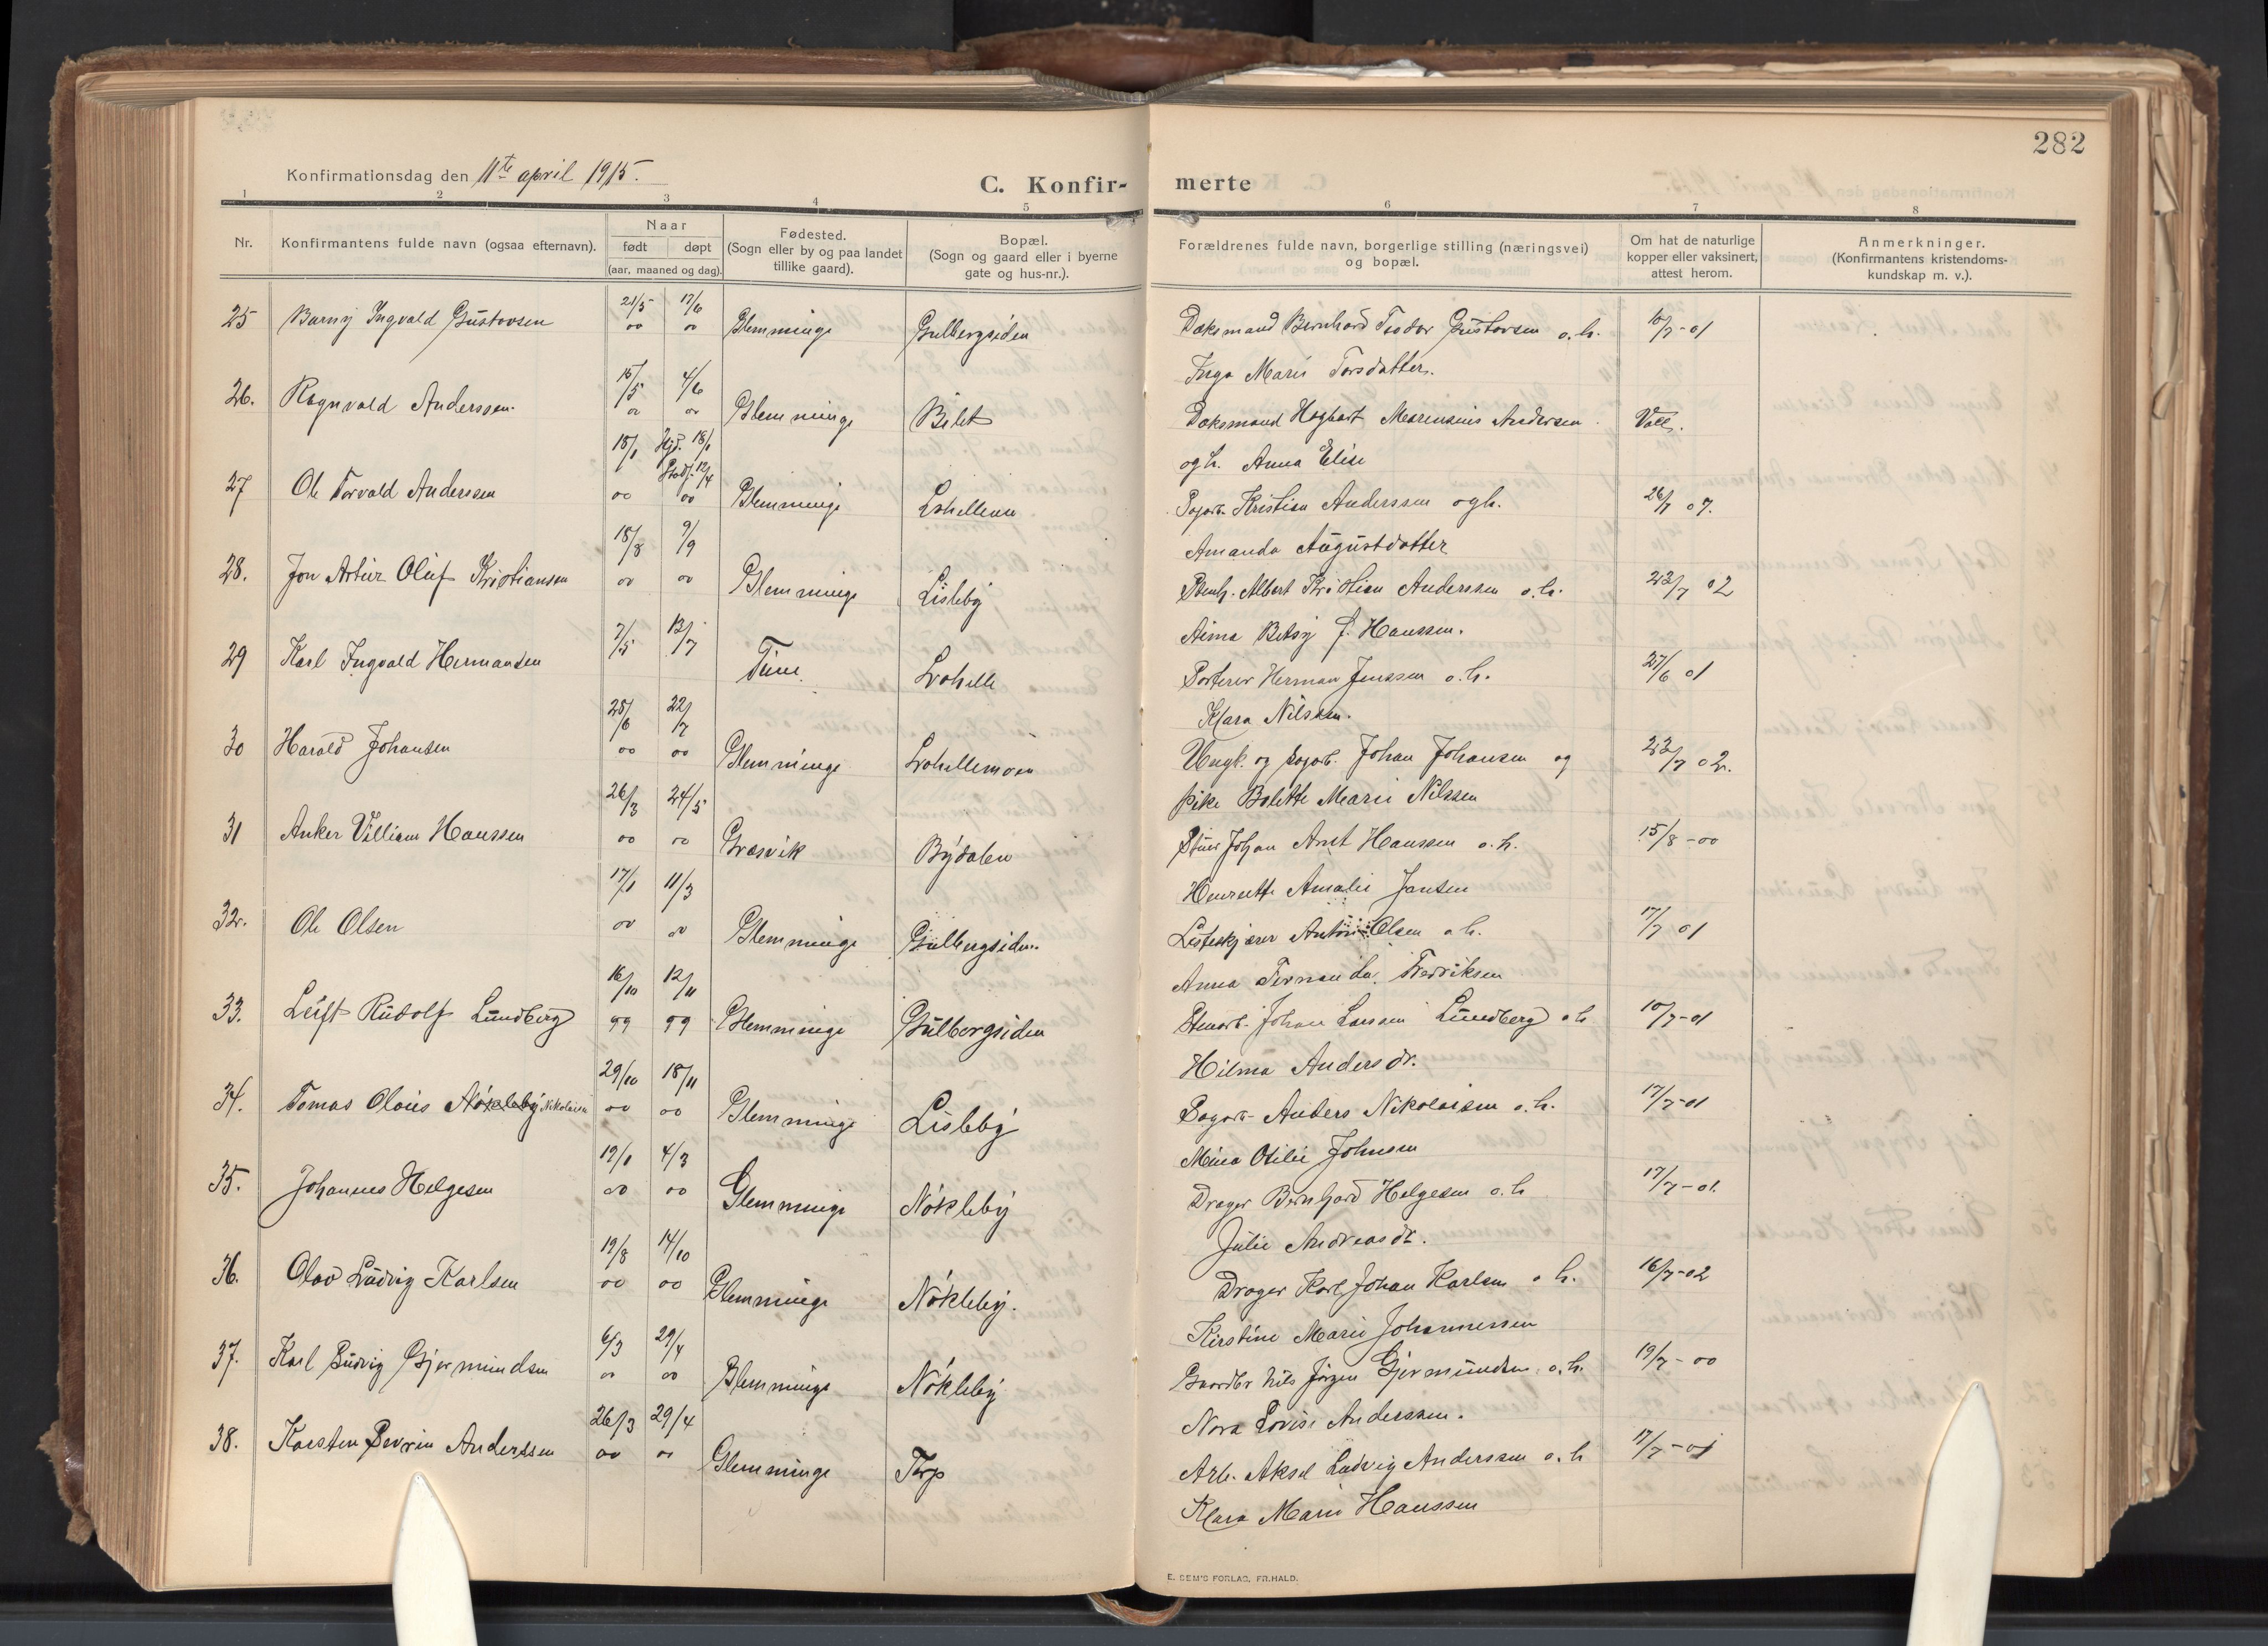 282
Konfirmationsdag den 11te april 1915.
C. Konfir-
merte
1 2 3 4 5 6 7 8
Nr.
Konfirmantens fulde navn (ogsaa efternavn).
Naar
født døpt
(aar, maaned og dag).
Fødested.
(Sogn eller by og paa landet
tillike gaard).
Bopæl.
(Sogn og gaard eller i byerne
gate og hus-nr.).
Forældrenes fulde navn, borgerlige stilling (næringsvei)
og bopæl.
Om hat de naturlige
kopper eller vaksinert,
attest herom.
Anmerkninger.
(Konfirmantens kristendoms-
kundskap m. v.).
25 Barny Ingvald Gustavsen 21/5 00 17/6 00 Glemminge Gulbergsiden Daksmand Bernhard Teodor Gustavsen o.h. 10/7-01
Inga Marie Torsdatter.
26. Ragnvald Anderssen. 15/5 00 4/6 00 Glemminge Bilet Daksmand Hagbart Marensius Andersen Vacc.
og h. Anna Elise
27 Ole Torvald Anderssen 18/1 00 Hjd. 18/1 Stadf. 12/4 00 Glemminge Lohellenn Sagarb. Kristian Anderssen og h. 26/7 07.
Amanda Augustdatter
28. Jon Artur Oluf Kristiansen 18/8 00 9/9 00 Glemminge Lisleby Stenh. Albert Kristian Anderssen o.h. 23/7 02
Aima Betsy f. Hanssen.
29 Karl Ingvald Hermansen 7/5 13/7 Tune Lohelle Sorterer Herman Jenssen o.h. 27/6 01
Klara Nilssen.
30 Harald Johansen 25/6 00 22/7 00 Glemminge Lohellemoen Ungk. og Sagarb. Johan Johansen og 23/7 02.
pike Bolette Marie Nilssen
31 Anker Villiam Hanssen 26/3 00 24/5 00 Græsvik Bydalen Stuer Johan Arnt Hanssen o.h. 15/8-00
Henriette Amalie Jansen
32. Ole Olsen 17/1 00 11/3 00 Glemminge Gulbergsiden Listeskjærer Anton Olsen o.h. 17/7 01
Anna Fernanda Fredriksen
33. Leift Rudolf Lundberg 16/10 99 12/11 99 Glemminge Gulbergsiden Stenarb. Johan Larssen Lundberg o.h. 10/7-01
Hilma Andersdr.
34. Tomas Olaus Nøkleby Nikolaisen 29/10 00 18/11 00 Glemminge Lisleby Sagarb. Anders Nikolaisen o.h. 17/7-01
Mina Otilie Johnsen
35. Johannes Helgesen 19/1 00 4/3 00 Glemminge Nøkleby Drager Bernhard Helgesen o.h 17/7-01.
Julie Andreasdr.
36. Olav Ludvig Karlsen 19/8 00 14/10 00 Glemminge Nøkleby. Drager Karl Johan Karlsen o h. 16/7-02
Kirstine Marie Johannessen
37. Karl Ludvig Gjermundsen 6/3 00 29/4 00 Glemminge Nøkleby Gaardbr Nils Jørgen Gjermundsen o.h. 19/7-00
Nora Lovise Anderssen.
38. Karsten Severin Anderssen 26/3 00 29/4 00 Glemminge Torp Arb. Aksel Ludvig Anderssen o.h 17/7-01
Klara Marie Hanssen
E. SEM'S FORLAG, FR.HALD.